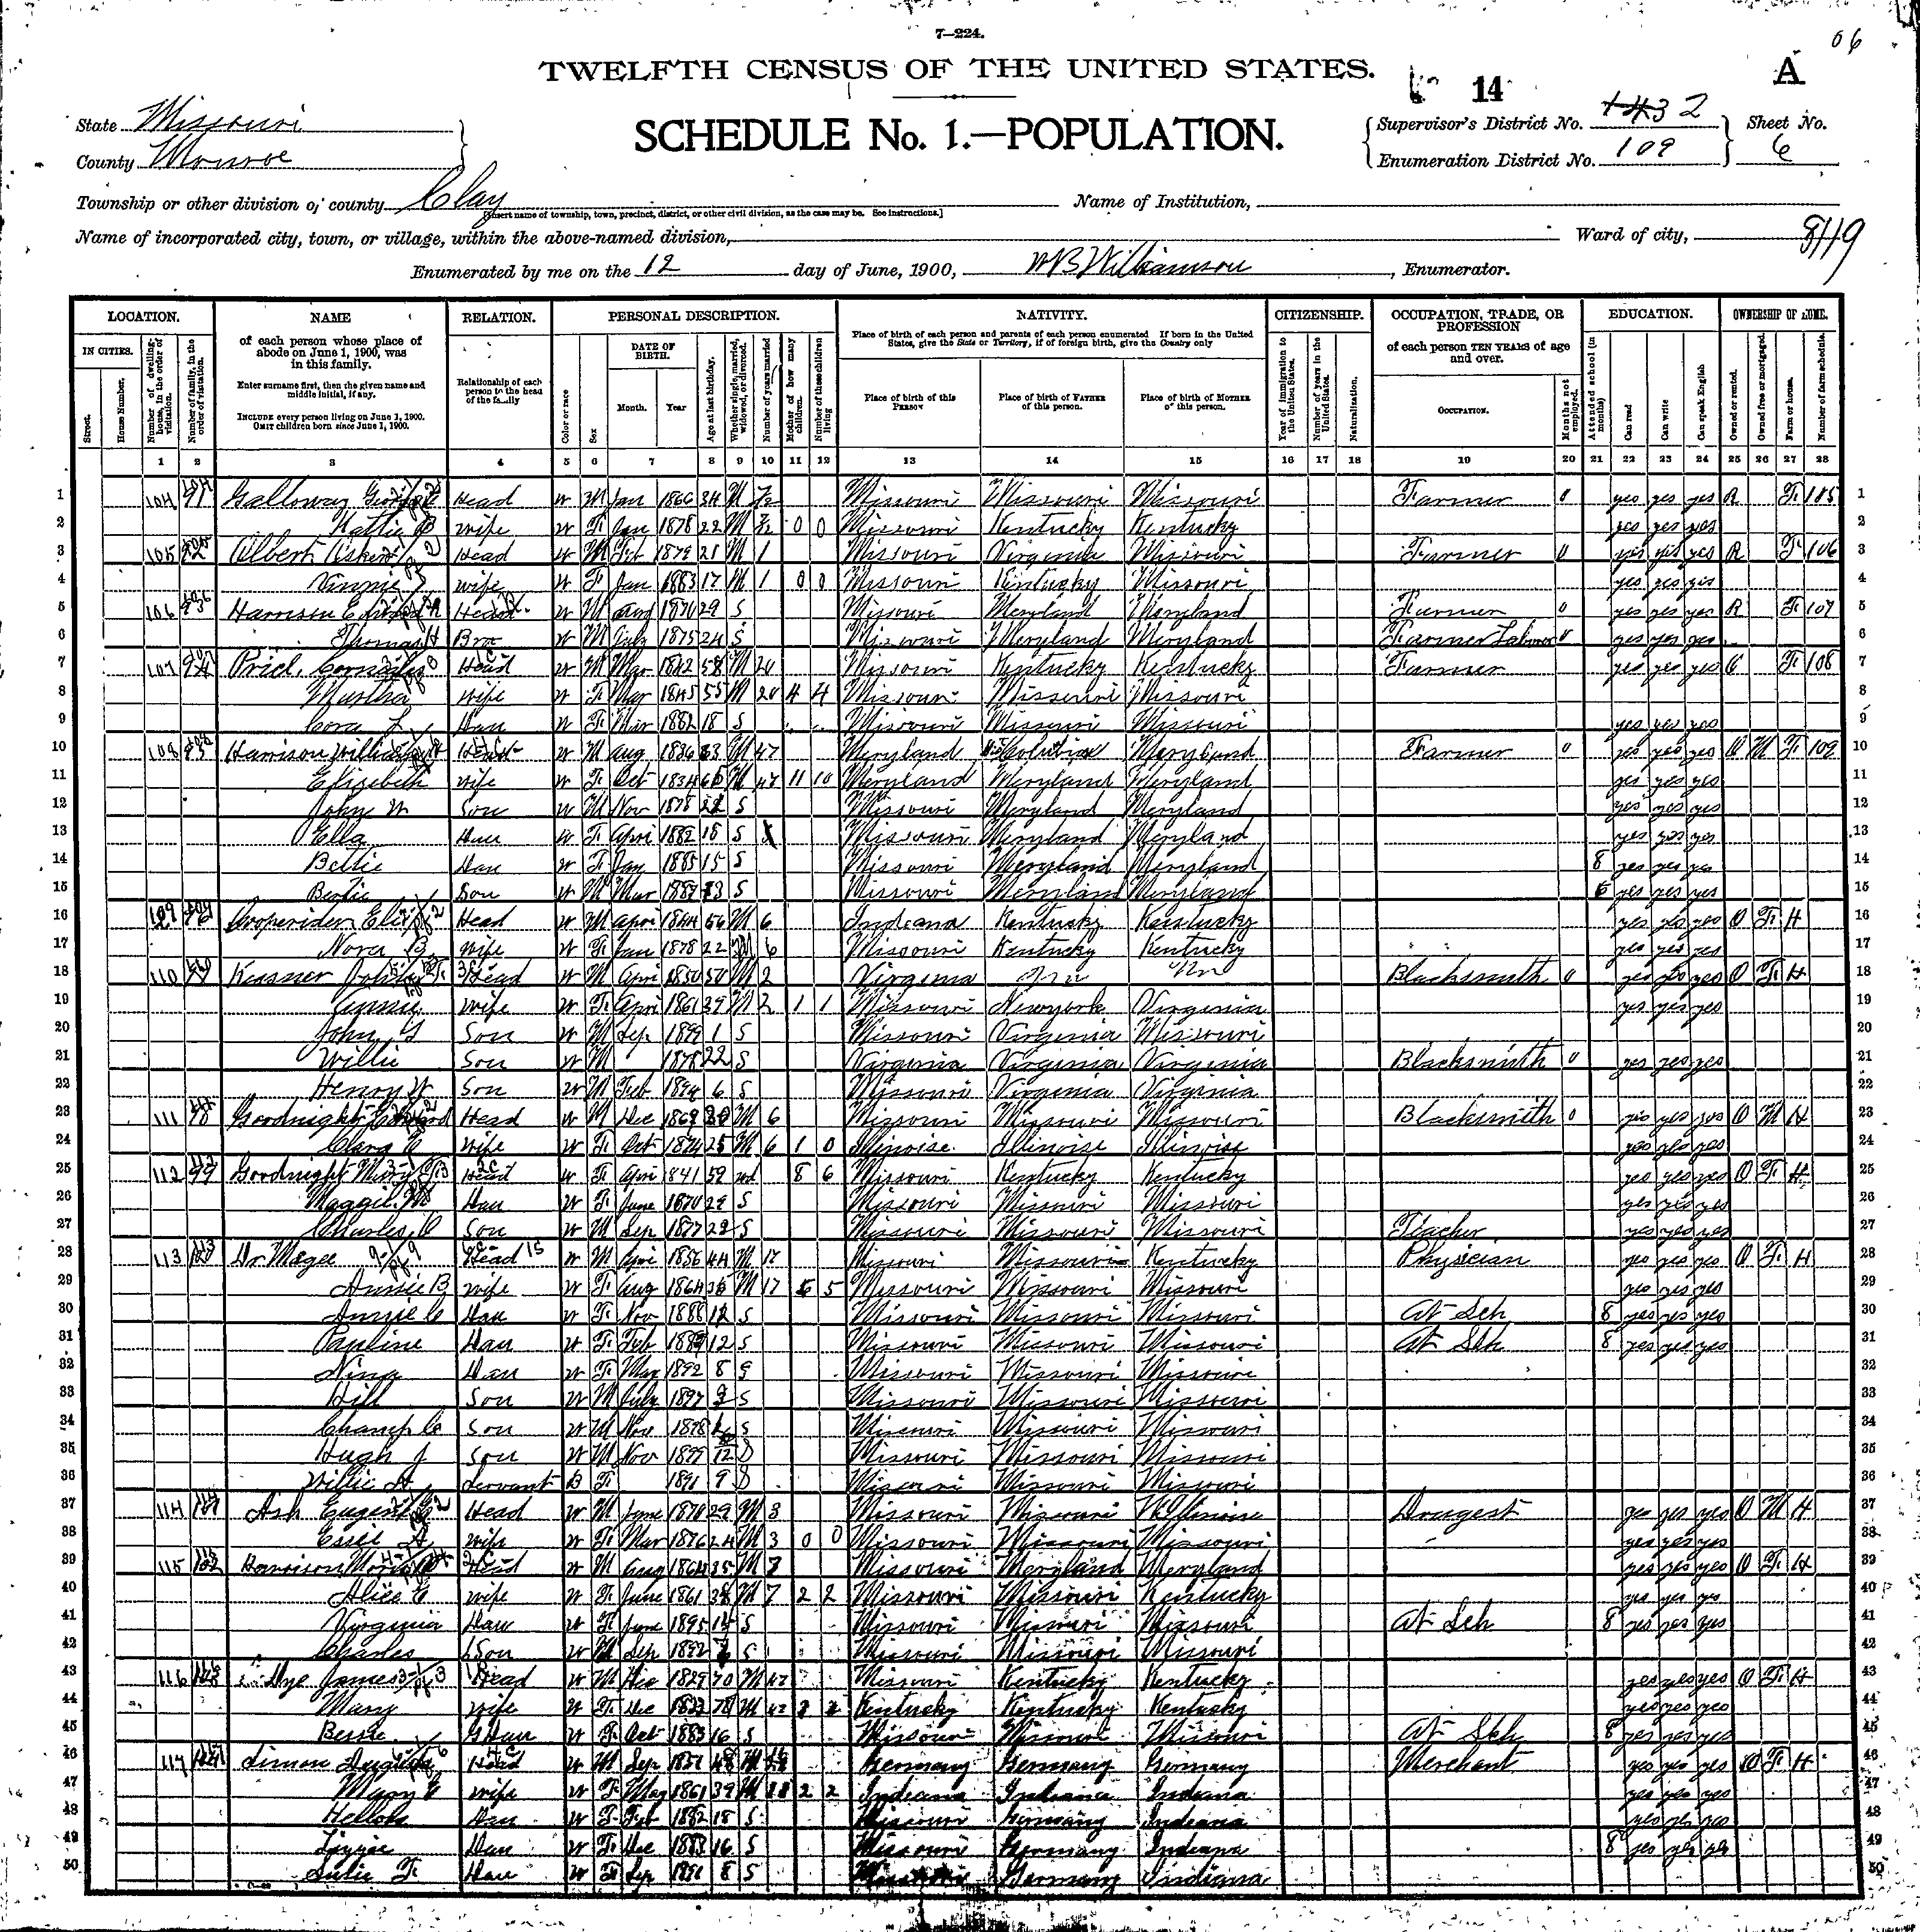 7—224.
06
TWELFTH CENSUS OF THE UNITED STATES.
A
14
State Missouri
County Monroe
SCHEDULE No. 1.—POPULATION.
Supervisor's District No. 2
Sheet No.
Enumeration District No. 109
6
Township or other division of county Clay
[Insert name of township, town, precinct, district, or other civil division, as the case may be. See instructions.]
Name of Institution,
Name of incorporated city, town, or village, within the above-named division,
Ward of city,
Enumerated by me on the 12 day of June, 1900, WB Williamson, Enumerator.
LOCATION. NAME RELATION. PERSONAL DESCRIPTION. NATIVITY. CITIZENSHIP. OCCUPATION, TRADE, OR PROFESSION EDUCATION. OWNERSHIP OF HOME.
IN CITIES. Street. House Number. Number of dwelling-house, in the order of visitation. Number of family, in the order of visitation.
of each person whose place of abode on June 1, 1900, was in this family.
Enter surname first, then the given name and middle initial, if any.
INCLUDE every person living on June 1, 1900.
OMIT children born since June 1, 1900.
Relationship of each person to the head of the family
Color or race Sex DATE OF BIRTH. Month. Year Age at last birthday. Whether single, married, widowed, or divorced. Number of years married Mother of how many children. Number of these children living
Place of birth of each person and parents of each person enumerated If born in the United States, give the State or Territory, if of foreign birth, give the Country only
Place of birth of this PERSON Place of birth of FATHER of this person. Place of birth of MOTHER of this person.
Year of immigration to the United States. Number of years in the United States. Naturalization.
of each person TEN YEARS of age and over.
OCCUPATION. Months not employed.
Attended school (in months) Can read Can write Can speak English
Owned or rented. Owned free or mortgaged. Farm or house. Number of farm schedule.
1 2 3 4 5 6 7 8 9 10 11 12 13 14 15 16 17 18 19 20 21 22 23 24 25 26 27 28
1 104 Galloway Head W M Jan 1866 34 M Missouri Missouri Missouri Farmer 0 yes yes yes R F 105 1
2 Hattie B wife W F Jan 1878 22 M 0 0 Missouri Kentucky Kentucky yes yes yes 2
3 105 Albert Head W M Feb 1879 21 M 1 Missouri Virginia Missouri Farmer 0 yes yes yes R F 106 3
4 wife W F Jan 1883 17 M 1 0 0 Missouri Kentucky Missouri yes yes yes 4
5 106 Harrison Head W M Aug 1870 29 S Missouri Meryland Meryland Farmer 0 yes yes yes R F 107 5
6 Thomas H Bro W M July 1875 24 S Missouri Meryland Meryland Farmer Labor 0 yes yes yes 6
7 107 Head W M Mar 1842 58 M 20 Missouri Kentucky Kentucky Farmer yes yes yes O F 108 7
8 Martha wife W F Mar 1845 55 M 20 4 4 Missouri Missouri Missouri 8
9 Cora L Dau W F Mar 1882 18 S Missouri Missouri Missouri yes yes yes 9
10 108 Harrison Head W M Aug 1836 63 M 47 Meryland Meryland Farmer 0 yes yes yes O M F 109 10
11 Elizebeth wife W F Oct 1834 65 M 47 11 10 Meryland Meryland Meryland yes yes yes 11
12 John W Son W M Nov 1878 S Missouri Meryland Meryland yes yes yes 12
13 Ella Dau W F Apri 1882 18 S Missouri Meryland Meryland yes yes yes 13
14 Bettie Dau W F Jan 1885 15 S Missouri Meryland Meryland 8 yes yes yes 14
15 Bertie Son W M Mar 1887 13 S Missouri Meryland Meryland yes yes yes 15
16 109 Cooperider Head W M Apri 1844 56 M 6 Indiana Kentucky Kentucky yes yes yes O F H 16
17 Nora B wife W F Jan 1878 22 M 6 Missouri Kentucky Kentucky yes yes yes 17
18 110 Head W M Apri 1850 50 M 2 Virginia Un Un Blacksmith 0 yes yes yes O F H 18
19 wife W F Apri 1861 39 M 2 1 1 Missouri Newyork Virginia yes yes yes 19
20 John Son W M Sep 1899 1 S Missouri Virginia Missouri 20
21 Willie Son W M 1878 22 S Virginia Virginia Virginia Blacksmith 0 yes yes yes 21
22 Henry W Son W M Feb 1894 6 S Missouri Virginia Virginia 22
23 111 Goodnight Head W M Dec 1869 30 M 6 Missouri Missouri Missouri Blacksmith 0 yes yes yes O M H 23
24 wife W F Oct 1874 25 M 6 1 0 Illinoise Illinoise Illinoise yes yes yes 24
25 112 Goodnight Mary Head W F Apri 1841 59 wd 8 6 Missouri Kentucky Kentucky yes yes yes O F H 25
26 Dau W F June 1870 29 S Missouri Missouri Missouri yes yes yes 26
27 Charles Son W M Sep 1877 22 S Missouri Missouri Missouri Teacher yes yes yes 27
28 113 Dr Magee Head W M Apri 1856 44 M 17 Missouri Missouri Kentucky Physician yes yes yes O F H 28
29 wife W F Aug 1864 35 M 17 5 Missouri Missouri Missouri yes yes yes 29
30 Annie C Dau W F Nov 1888 S Missouri Missouri Missouri At Sch 8 yes yes yes 30
31 Pauline Dau W F Feb 12 S Missouri Missouri Missouri At Sch 8 yes yes yes 31
32 Nina Dau W F Mar 1892 8 S Missouri Missouri Missouri 32
33 Hill Son W M July 1897 S Missouri Missouri Missouri 33
34 Champ C Son W M Nov 1898 S Missouri Missouri Missouri 34
35 Hugh J Son W M Nov 1899 S Missouri Missouri Missouri 35
36 Willie A Servant B F 1891 9 S Missouri Missouri Missouri 36
37 114 Ash Eugene Head W M June 1870 29 M 3 Missouri Missouri Illinoise Drugest yes yes yes O M H 37
38 Essie wife W F Mar 1876 24 M 3 0 0 Missouri Missouri Missouri yes yes yes 38
39 115 Harrison Head W M Aug 1864 35 M 7 Missouri Meryland Meryland yes yes yes O F H 39
40 Alice wife W F June 1861 38 M 7 2 2 Missouri Missouri Kentucky yes yes yes 40
41 Virginia Dau W F June 1895 S Missouri Missouri Missouri At Sch 8 yes yes yes 41
42 Charles Son W M Sep S Missouri Missouri Missouri 42
43 116 Dye James Head W M Dec 1829 70 M 47 Missouri Kentucky Kentucky yes yes yes O F H 43
44 Mary wife W F Dec M Kentucky Kentucky Kentucky yes yes yes 44
45 Bessie G Dau W F Oct 1883 16 S Missouri Missouri Missouri At Sch 8 yes yes yes 45
46 117 Simon Head W M Sep 1851 48 M Germany Germany Germany Merchant yes yes yes O F H 46
47 Mary wife W F May 1861 39 M 2 2 Indiana Indiana Indiana yes yes yes 47
48 Dau W F Feb 1882 18 S Missouri Germany Indiana yes yes yes 48
49 Dau W F Dec 1883 16 S Missouri Germany Indiana 8 yes yes yes 49
50 Dau W F Sep 1891 8 S Missouri Germany Indiana 50